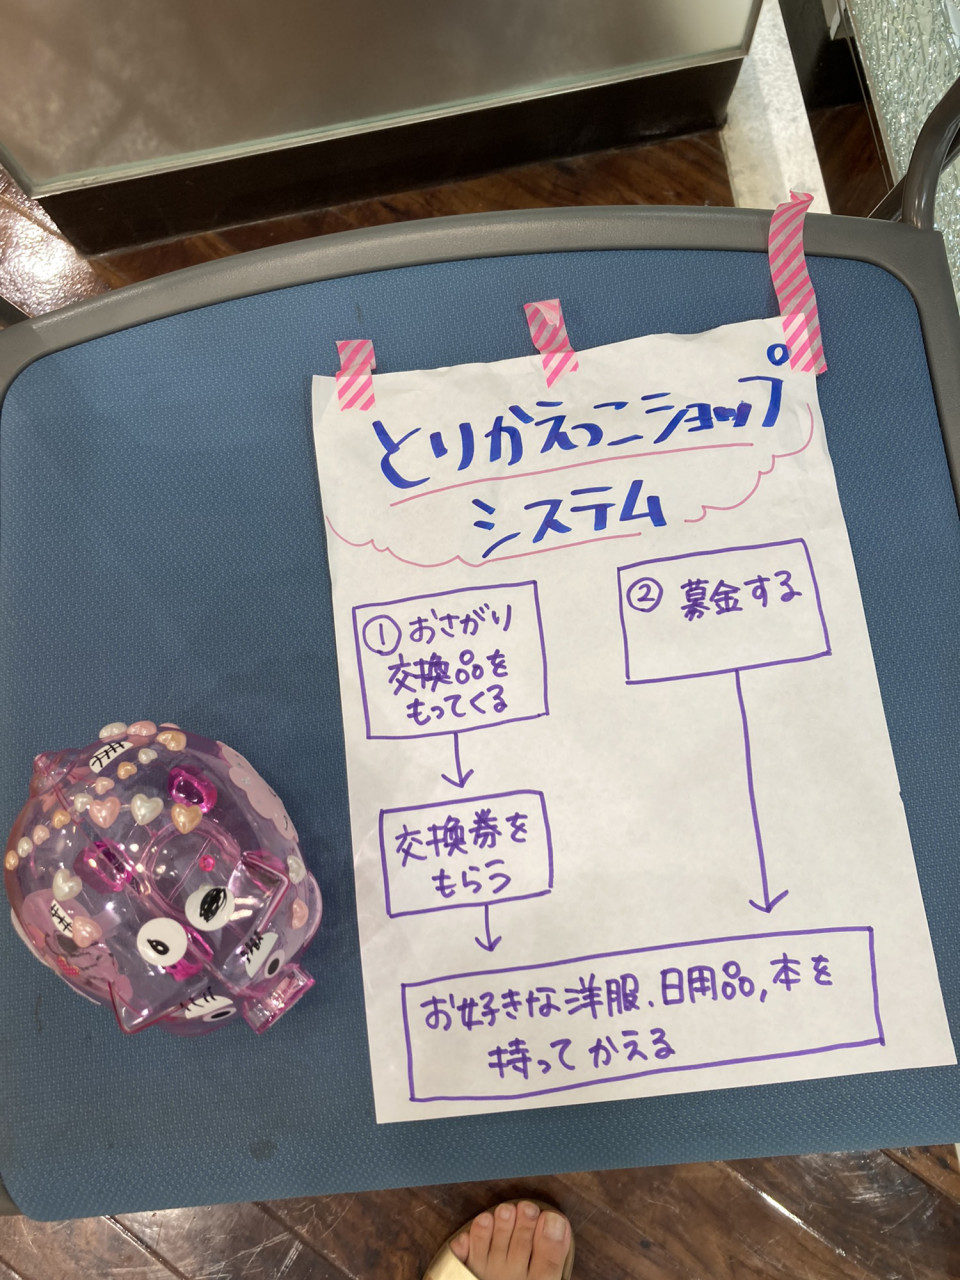 とりかえっこショップ
システム
① おさがり
交換品を
もってくる
② 募金する
交換券を
もらう
お好きな洋服、日用品,本を
持って かえる